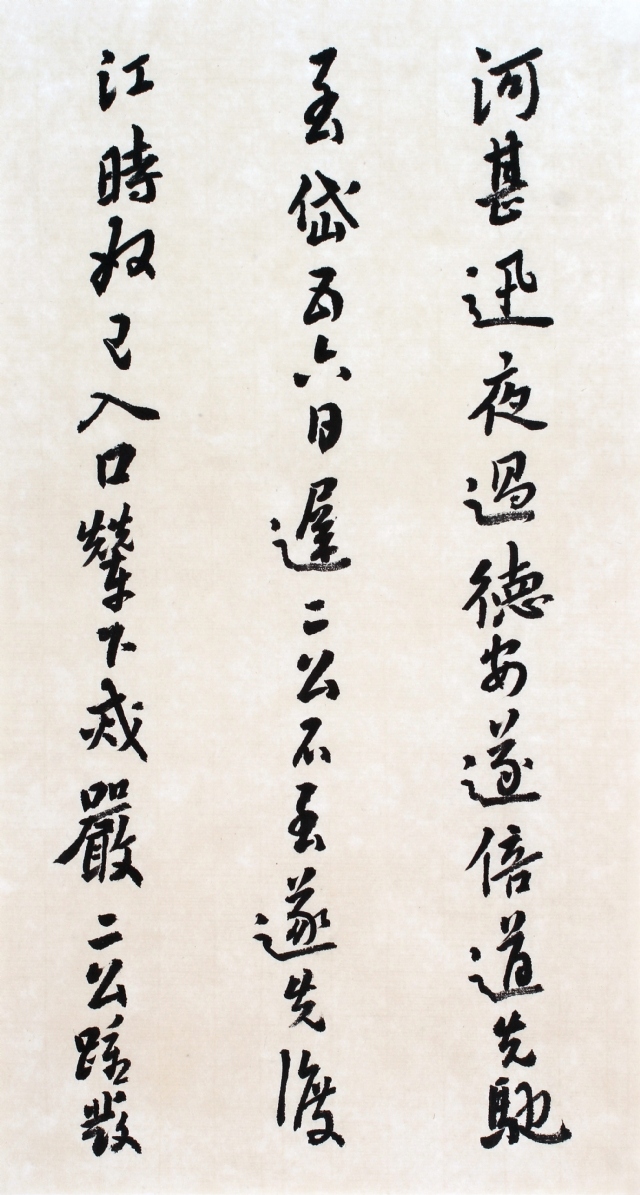 河甚迅夜過德安遂倍道先馳
至岱五六日遲二公不至遂先渡
江時奴已入口輦下戒嚴二公踪跡